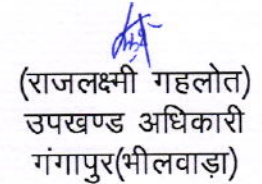 (राजलक्ष्मी गहलोत)
उपखण्ड अधिकारी
गंगापुर(भीलवाड़ा)